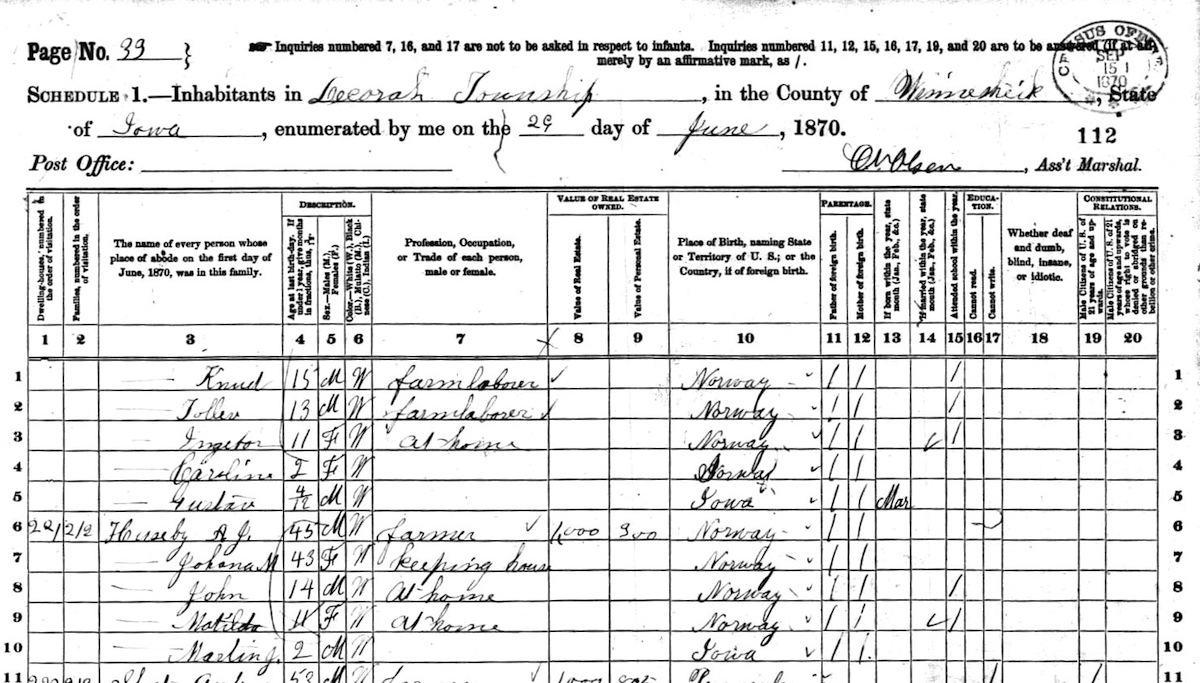 Page No. 33 } ☛ Inquiries numbered 7, 16, and 17 are not to be asked in respect to infants. Inquiries numbered 11, 12, 15, 16, 17, 19, and 20 are to be answered (if at all)
merely by an affirmative mark, as /.
CENSUS OF
SEP
15
1870
SCHEDULE 1.—Inhabitants in Decorah Township, in the County of Winnesheik, State
of Iowa, enumerated by me on the 29 day of June, 1870.
112
Post Office: O. N. Olsen, Ass't Marshal.
Dwelling-houses, numbered in the order of visitation.
Families, numbered in the order of visitation.
The name of every person whose place of abode on the first day of June, 1870, was in this family.
DESCRIPTION.
Age at last birth-day. If under 1 year, give months in fractions, thus, 
Sex.—Males (M.), Females (F.)
Color.—White (W.), Black (B.), Mulatto (M.), Chinese (C.), Indian (I.)
Profession, Occupation, or Trade of each person, male or female.
VALUE OF REAL ESTATE OWNED.
Value of Real Estate.
Value of Personal Estate.
Place of Birth, naming State or Territory of U. S.; or the Country, if of foreign birth.
PARENTAGE.
Father of foreign birth.
Mother of foreign birth.
If born within the year, state month (Jan., Feb., &c.)
If married within the year, state month (Jan., Feb., &c.)
Attended school within the year.
EDUCATION.
Cannot read.
Cannot write.
Whether deaf and dumb, blind, insane, or idiotic.
CONSTITUTIONAL RELATIONS.
Male Citizens of U. S. of 21 years of age and upwards.
Male Citizens of U. S. of 21 years of age and upwards, whose right to vote is denied or abridged on other grounds than rebellion or other crime.
1 2 3 4 5 6 7 8 9 10 11 12 13 14 15 16 17 18 19 20
1 — Knud 15 M W farm laborer Norway / / / 1
2 — Tollev 13 M W farm laborer Norway / / / 2
3 — Ingebor 11 F W At home Norway / / / 3
4 — Caroline 2 F W Norway / / 4
5 — Gustav 4/12 M W Iowa / / Mar 5
6 221 212 Huseby A. J. 45 M W farmer 1,000 300 Norway / / 6
7 — Johana M 43 F W keeping house Norway / / 7
8 — John 14 M W At home Norway / / / 8
9 — Matilda 11 F W At home Norway / / / 9
10 — Martin J. 2 M W Iowa / / 10
11 53 M W 11